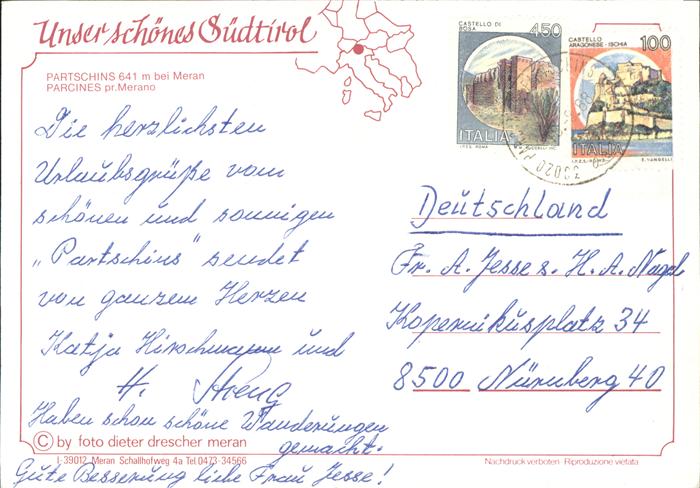 Unser schönes Südtirol
PARTSCHINS 641 m bei Meran
PARCINES pr. Merano
CASTELLO DI BOSA 450
ITALIA
I.P.Z.S. ROMA
CASTELLO ARAGONESE - ISCHIA 100
ITALIA
I.P.Z.S. ROMA E. VANGELLI
39020
Die herzlichsten
Urlaubsgrüße vom
schönen und sonnigen
„Partschins" sendet
von ganzem Herzen
Katja Hirschmann und
H.
Haben schon schöne Wanderungen
gemacht.
Gute Besserung liebe Frau Jesse!
Deutschland
Fr. A. Jesse s. H. A. Nagel
Kopernikusplatz 34
8500 Nürnberg 40
© by foto dieter drescher meran
I-39012 Meran Schallhofweg 4a Tel. 0473-34566
Nachdruck verboten Riproduzione vietata